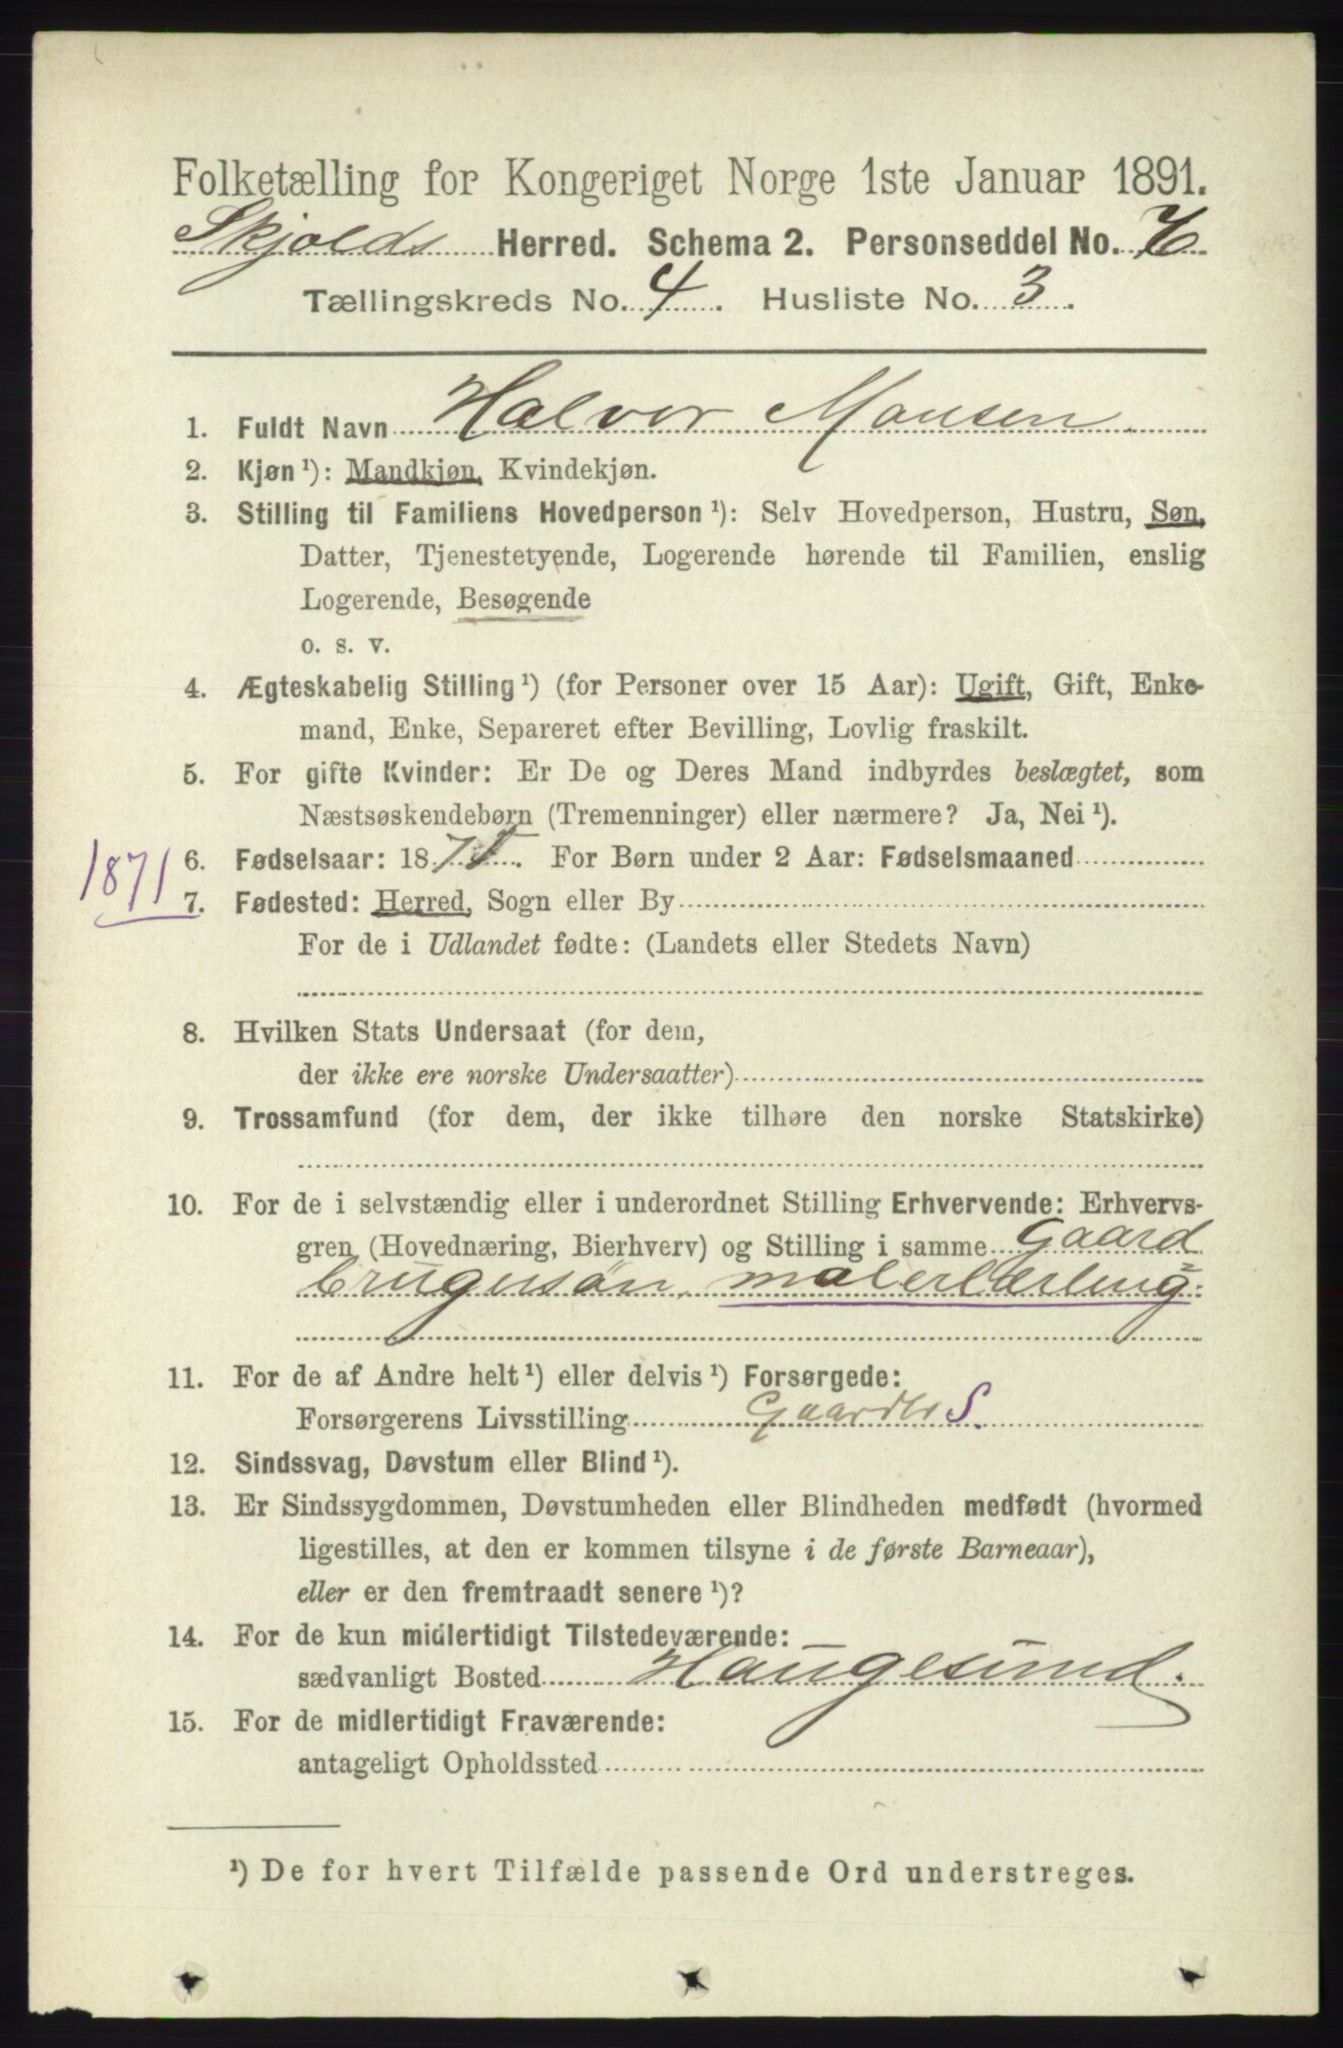 Folketælling for Kongeriget Norge 1ste Januar 1891.
Skjolds Herred. Schema 2. Personseddel No.
Tællingskreds No. 4. Husliste No. 3.
1. Fuldt Navn Halvor Monsen
2. Kjøn ¹): Mandkjøn, Kvindekjøn.
3. Stilling til Familiens Hovedperson ¹): Selv Hovedperson, Hustru, Søn,
Datter, Tjenestetyende, Logerende hørende til Familien, enslig
Logerende, Besøgende
o. s. v.
4. Ægteskabelig Stilling ¹) (for Personer over 15 Aar): Ugift, Gift, Enke-
mand, Enke, Separeret efter Bevilling, Lovlig fraskilt.
5. For gifte Kvinder: Er De og Deres Mand indbyrdes beslægtet, som
Næstsøskendebørn (Tremenninger) eller nærmere? Ja, Nei ¹).
1871
6. Fødselsaar: 1871. For Børn under 2 Aar: Fødselsmaaned
7. Fødested: Herred, Sogn eller By
For de i Udlandet fødte: (Landets eller Stedets Navn)
8. Hvilken Stats Undersaat (for dem,
der ikke ere norske Undersaatter)
9. Trossamfund (for dem, der ikke tilhøre den norske Statskirke)
10. For de i selvstændig eller i underordnet Stilling Erhvervende: Erhvervs-
gren (Hovednæring, Bierhverv) og Stilling i samme Gaard
brugersøn, malerlærling.
11. For de af Andre helt ¹) eller delvis ¹) Forsørgede:
Forsørgerens Livsstilling Gaardbr S.
12. Sindssvag, Døvstum eller Blind ¹).
13. Er Sindssygdommen, Døvstumheden eller Blindheden medfødt (hvormed
ligestilles, at den er kommen tilsyne i de første Barneaar),
eller er den fremtraadt senere ¹)?
14. For de kun midlertidigt Tilstedeværende:
sædvanligt Bosted Haugesund.
15. For de midlertidigt Fraværende:
antageligt Opholdssted
¹) De for hvert Tilfælde passende Ord understreges.